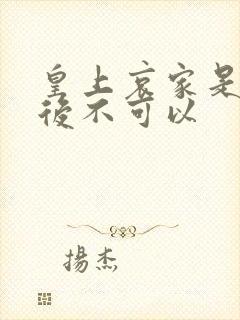 皇上哀家是
後不可以
揚杰